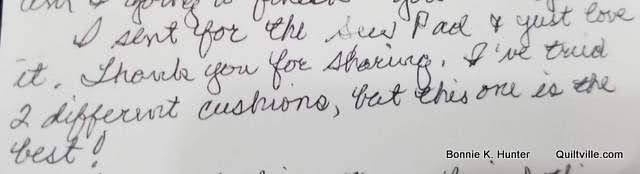 I sent for the Sew Pad & just love
it. Thank you for sharing. I've tried
2 different cushions, but this one is the
best!
Bonnie K. Hunter Quiltville.com